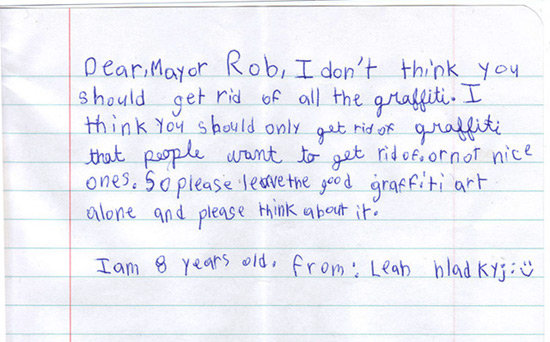 Dear, Mayor Rob, I don't think you
should get rid of all the graffiti. I
think you should only get rid of graffiti
that people want to get rid of. or not nice
ones. So please leave the good graffiti art
alone and please think about it.
I am 8 years old. From: Leah hladkyj :)